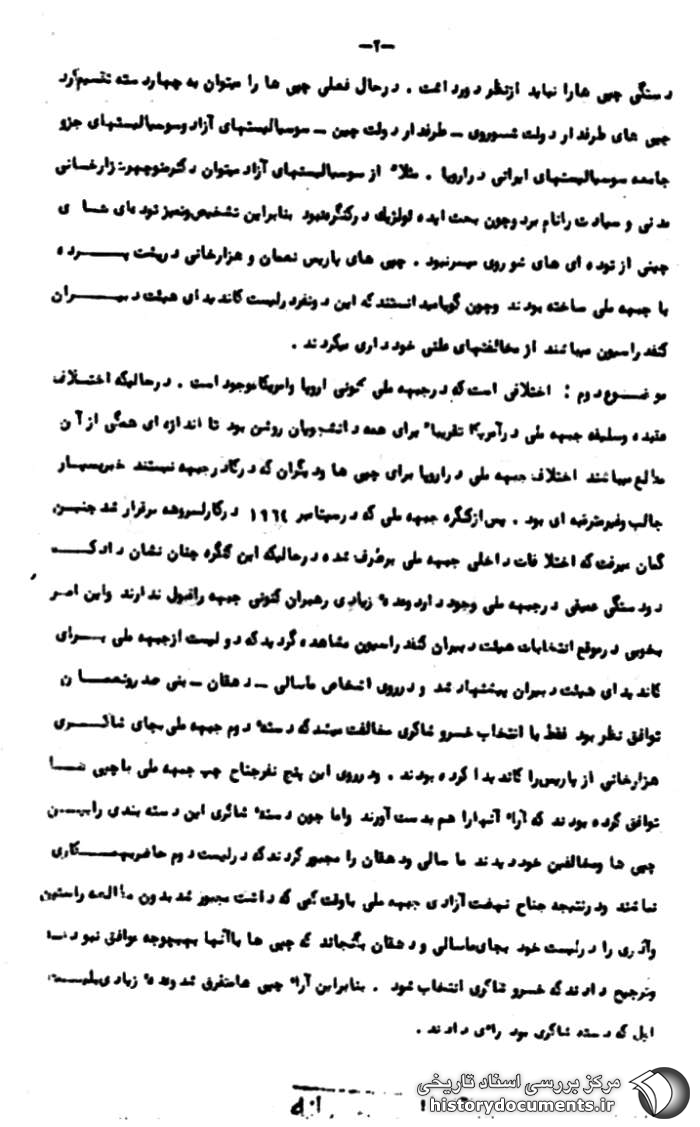 -۲-
دستگی چپی هارا نباید ازنظر دورداشت . درحال فعلی چپی ها را میتوان به چهاردسته تقسیم کرد
چپی های طرفدار دولت شوروی - طرفدار دولت چین - سوسیالیستهای آزاد وسوسیالیستهای جزو
جامعه سوسیالیستهای ایرانی دراروپا . مثلا" از سوسیالیستهای آزاد میتوان دکترمنوچهر هزارخانی
مدنی و سیادت رانام برد وچون بحث ایده ئولوژیك درکنگره نبود بنابراین تشخیص وتمیز توده ای های
چینی از توده ای های شوروی میسرنبود . چپی های پاریس نعمان و هزارخانی درپشت پرده
با جبهه ملی ساخته بودند وچون گویا میدانستند که این دونفرد رلیست کاندیدای هیئت دبیران
کنفدراسیون میباشند از مخالفتهای علنی خودداری میکردند .
موضوع دوم : اختلافی است که درجبهه ملی کنونی اروپا وامریکا موجود است . درحالیکه اختلاف
عقیده وسلیقه جبهه ملی درآمریکا تقریبا" برای همه دانشجویان روشن بود تا اندازه ای همگی از آن
مطلع میباشند اختلاف جبهه ملی دراروپا برای چپی ها ودیگران که درکادرجبهه نیستند خبربسیار
جالب وغیرمترقبه ای بود . پس ازکنگره جبهه ملی که درسپتامبر ۱۹٦٤ درکارلسروهه برقرار شد چنین
گمان میرفت که اختلافات داخلی جبهه ملی برطرف شده درحالیکه این کنگره چنان نشان داد که
دودستگی عمیقی درجبهه ملی وجود دارد وعده زیادی رهبران کنونی جبهه راقبول ندارند واین امر
بخوبی درموقع انتخابات هیئت دبیران کنفدراسیون مشاهده گردید که دو لیست ازجبهه ملی برای
کاندیدای هیئت دبیران پیشنهاد شد و درروی اشخاص ماسالی - دهقان - بنی صدر ونعمان
توافق نظر بود فقط با انتخاب خسرو شاکری مخالفت میشد که دسته دوم جبهه ملی بجای شاکری
هزارخانی از پاریس را کاندیدا کرده بودند . ودرروی این پنج نفرجناح چپ جبهه ملی باچپی ها
توافق کرده بودند که آراء آنهارا هم بدست آورند واما چون دسته شاکری این دسته بندی رابین
چپی ها ومخالفین خود دیدند ماسالی ودهقان را مجبور کردند که درلیست دوم حاضربهمکاری
نباشند ودرنتیجه جناح نهضت آزادی جبهه ملی باوقت کمی که داشت مجبور شد بدون مطالعه راستین
وآذری را درلیست خود بجای ماسالی و دهقان بگنجاند که چپی ها باآنها بهیچوجه موافق نبودند
وترجیح دادند که خسرو شاکری انتخاب شود . بنابراین آراء چپی ها متفرق شد وعده زیادی بلیست
اول که دسته شاکری بود رای دادند .
مرکز بررسی اسناد تاریخی
historydocuments.ir